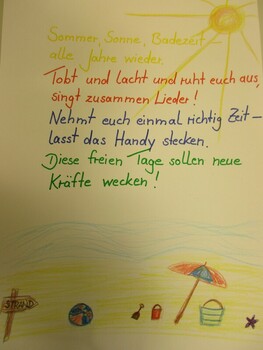 Sommer, Sonne, Badezeit –
alle Jahre wieder.
Tobt und lacht und ruht euch aus,
singt zusammen Lieder!
Nehmt euch einmal richtig Zeit –
lasst das Handy stecken.
Diese freien Tage sollen neue
Kräfte wecken!
STRAND